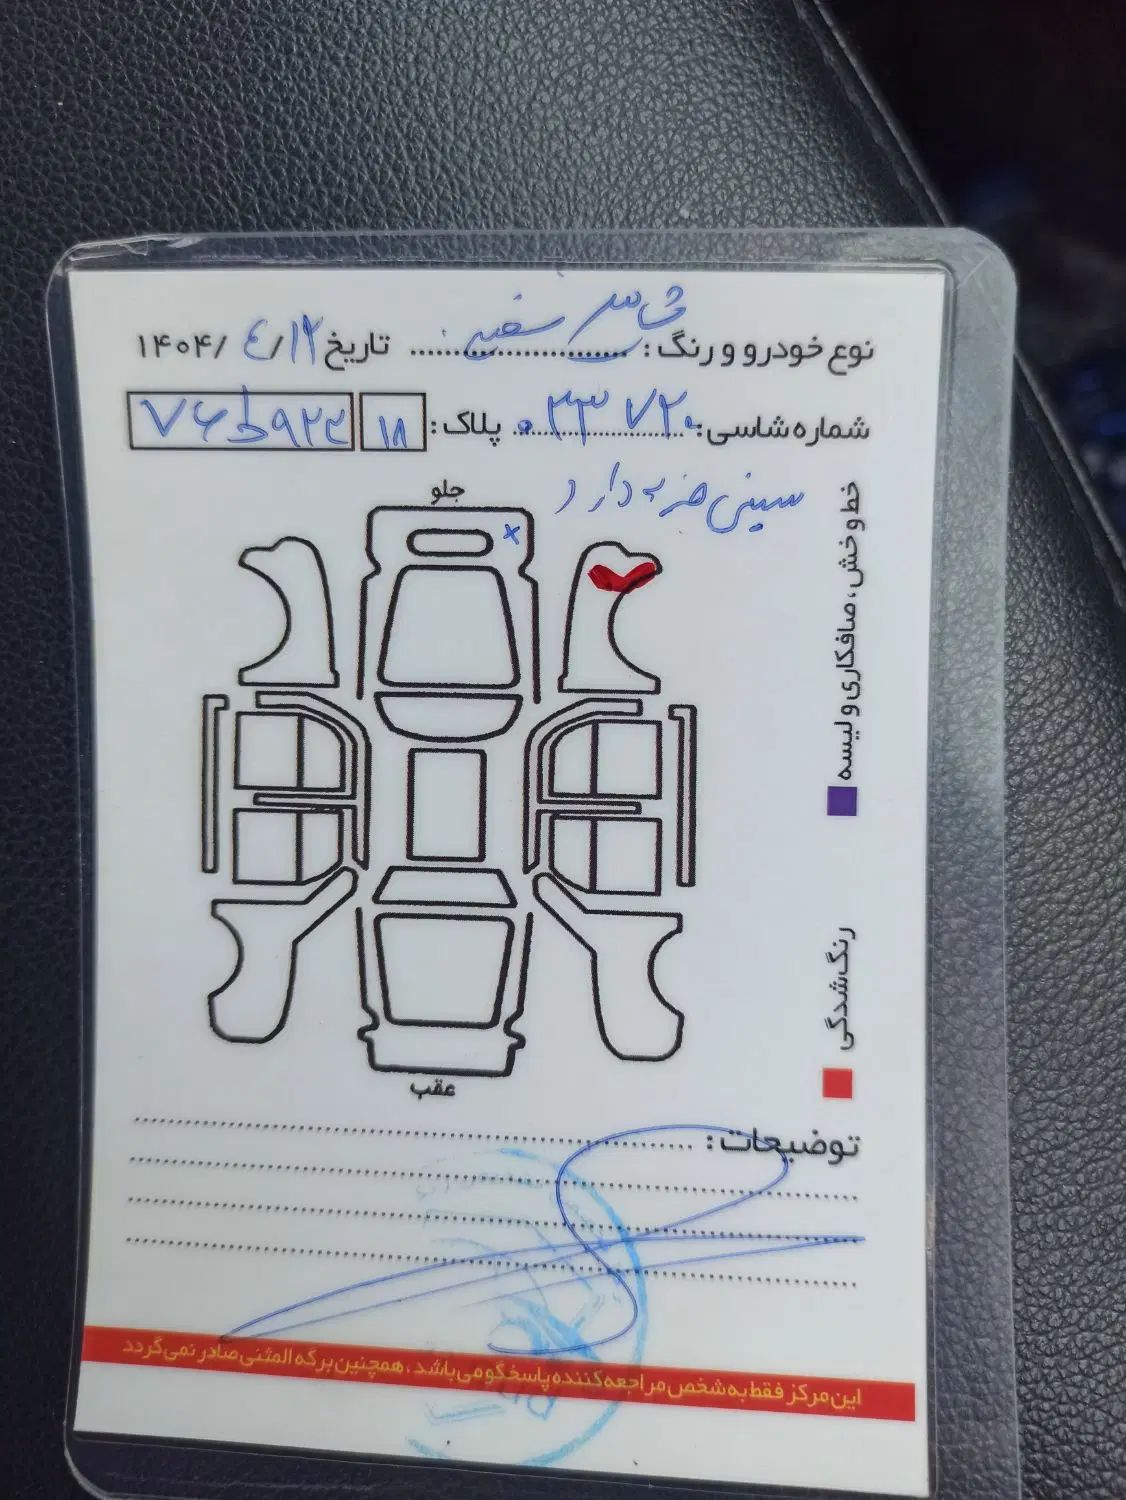 نوع خودرو و رنگ: شاهین سفید تاریخ ۱۲/ ٤ /۱۴۰۴
شماره شاسی: ۰۳۳۷۲۰ پلاک: ۱۸ ۷۶ط۹۲۳
سینی ضربه دارد
جلو
خط و خش، صافکاری و لیسه
رنگ‌شدگی
عقب
توضیحات:
این مرکز فقط به شخص مراجعه کننده پاسخگو می باشد، همچنین برگه المثنی صادر نمی گردد